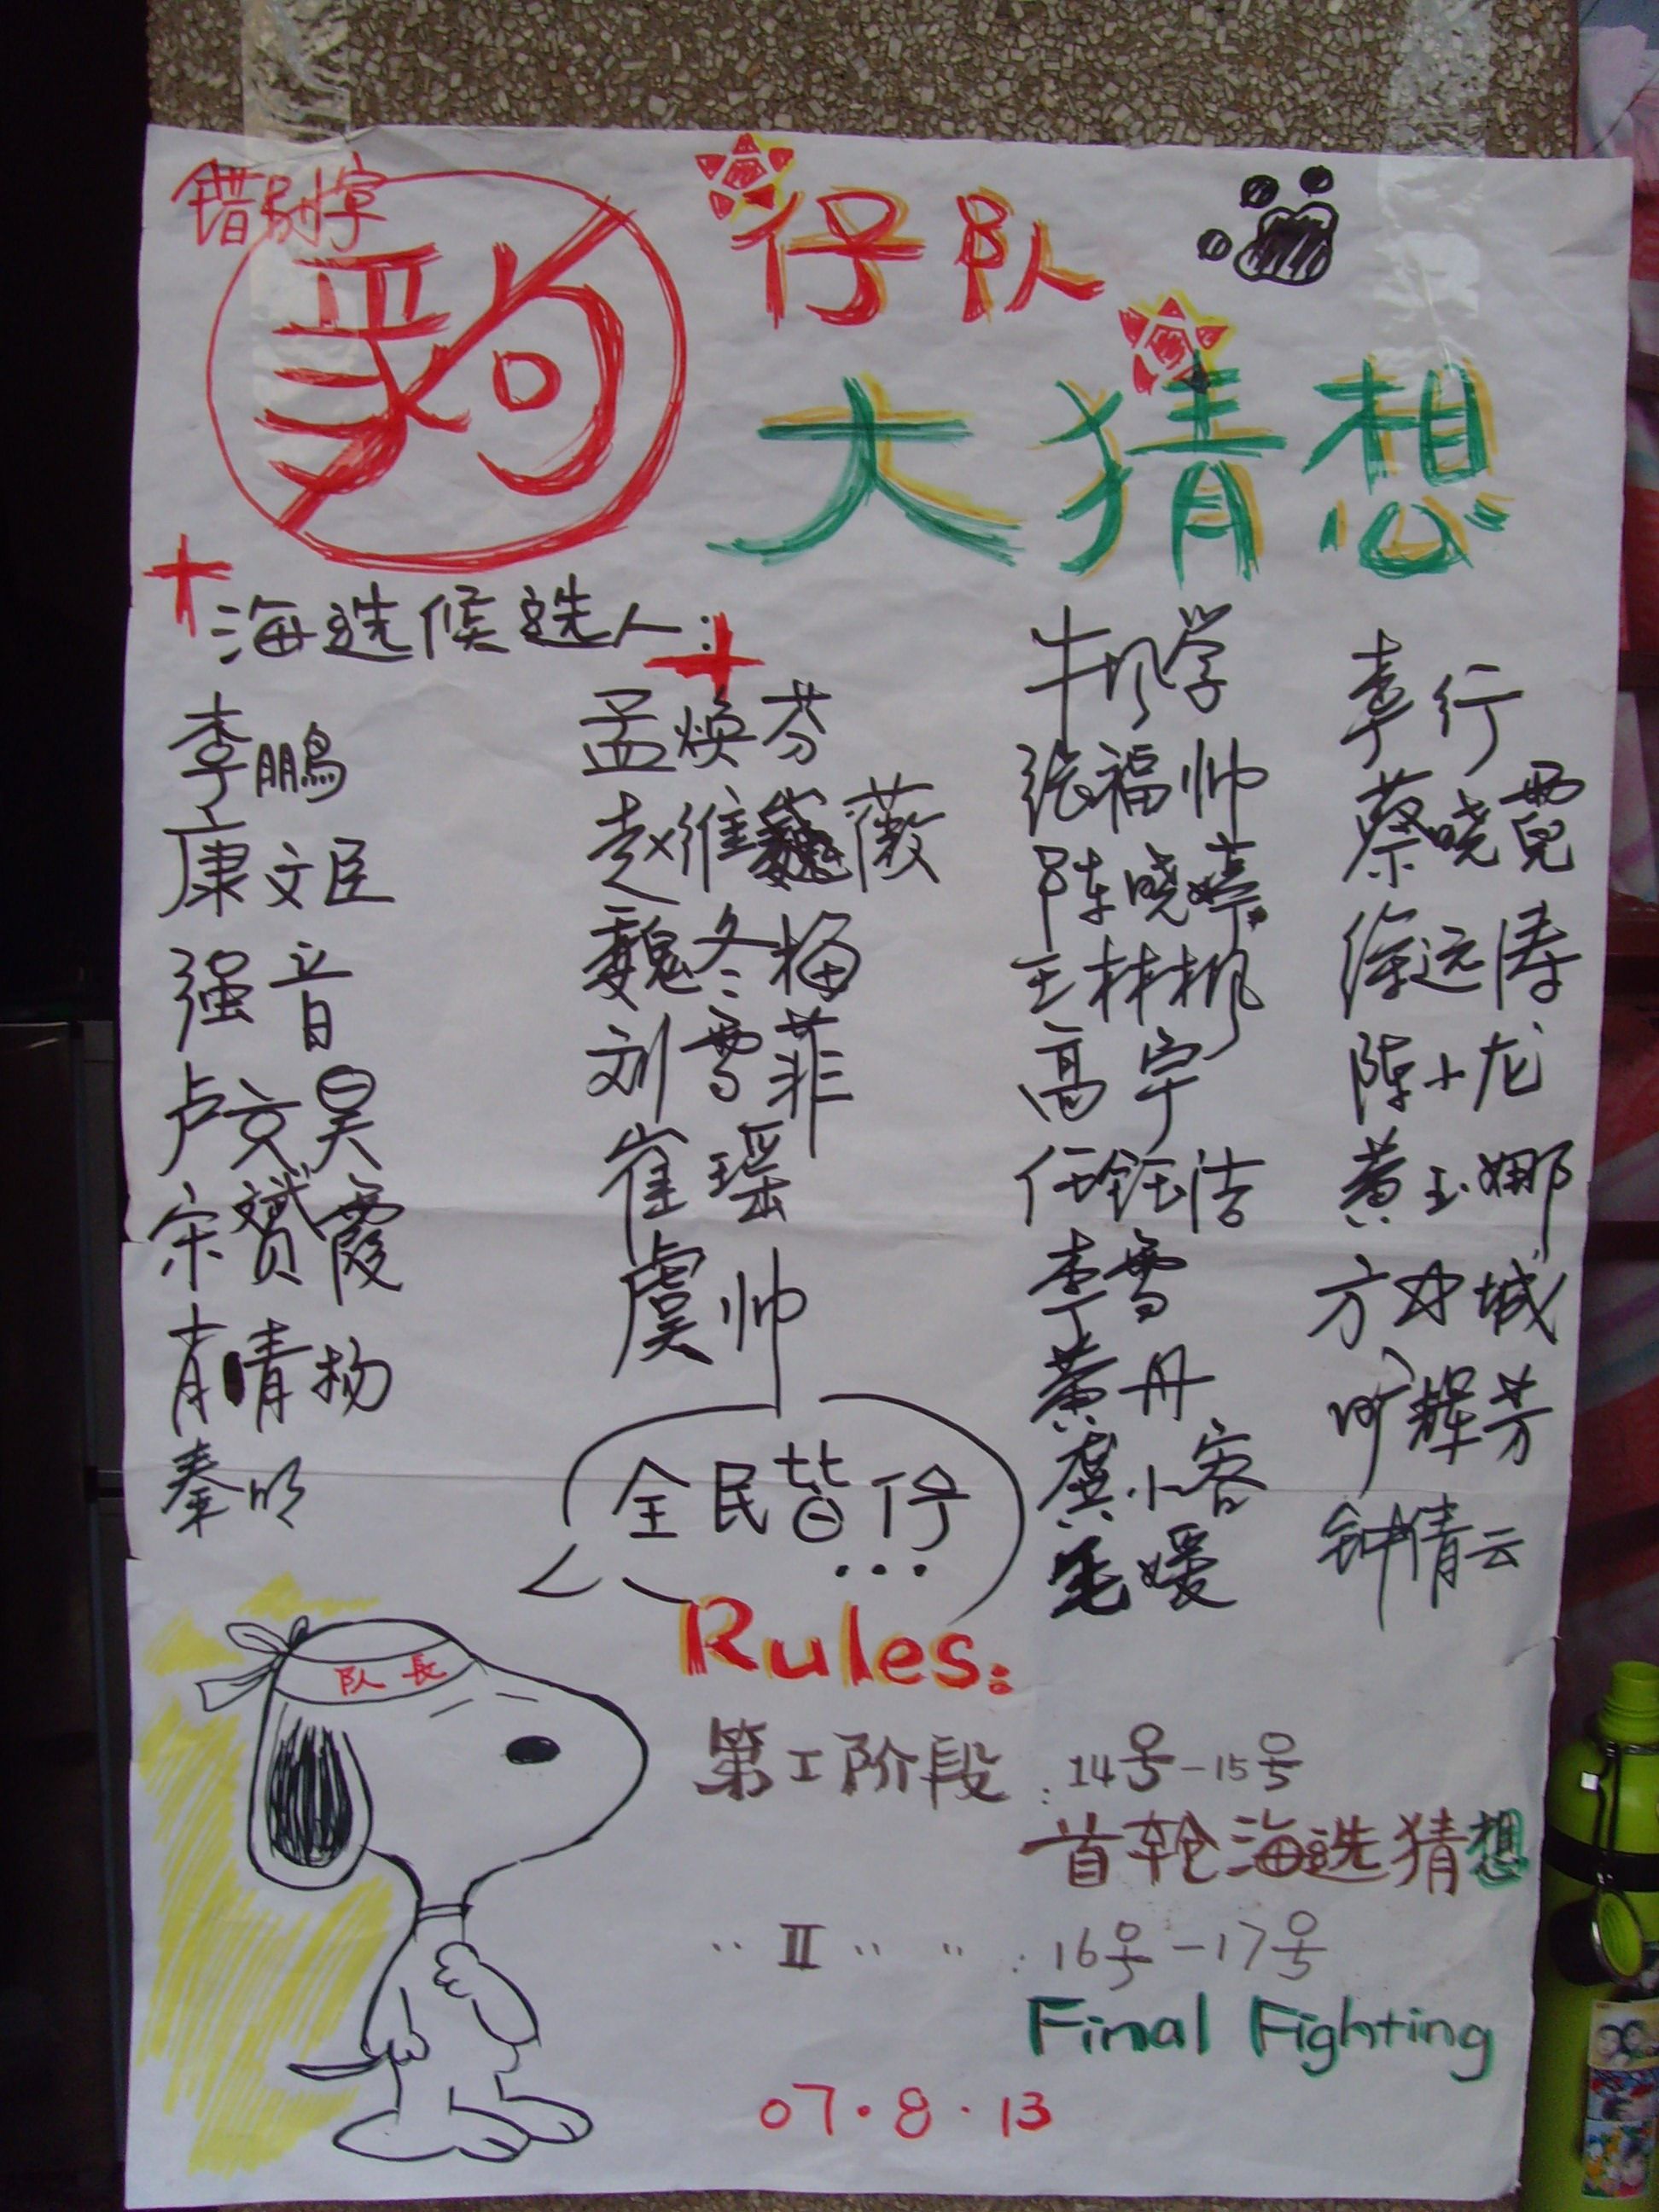 错别字
仔队
大猜想
海选候选人:
李鹏
康文臣
强音
卢文昊
宋赟霞
肖晴扬
秦明
孟焕芬
赵维薇
魏冬梅
刘雪菲
崔瑶
虞帅
牛帆学
张福帅
陈晓婷
王林枫
高宇
任钰洁
李雪
黄丹
虞小客
毛媛
李行
蔡晓霓
徐远涛
陈小龙
黄玉娜
方城
耀芳
钟倩云
全民皆仔...
队長
Rules:
第I阶段:14号-15号
首轮海选猜想
〃 II 〃 〃 :16号-17号
Final Fighting
07.8.13